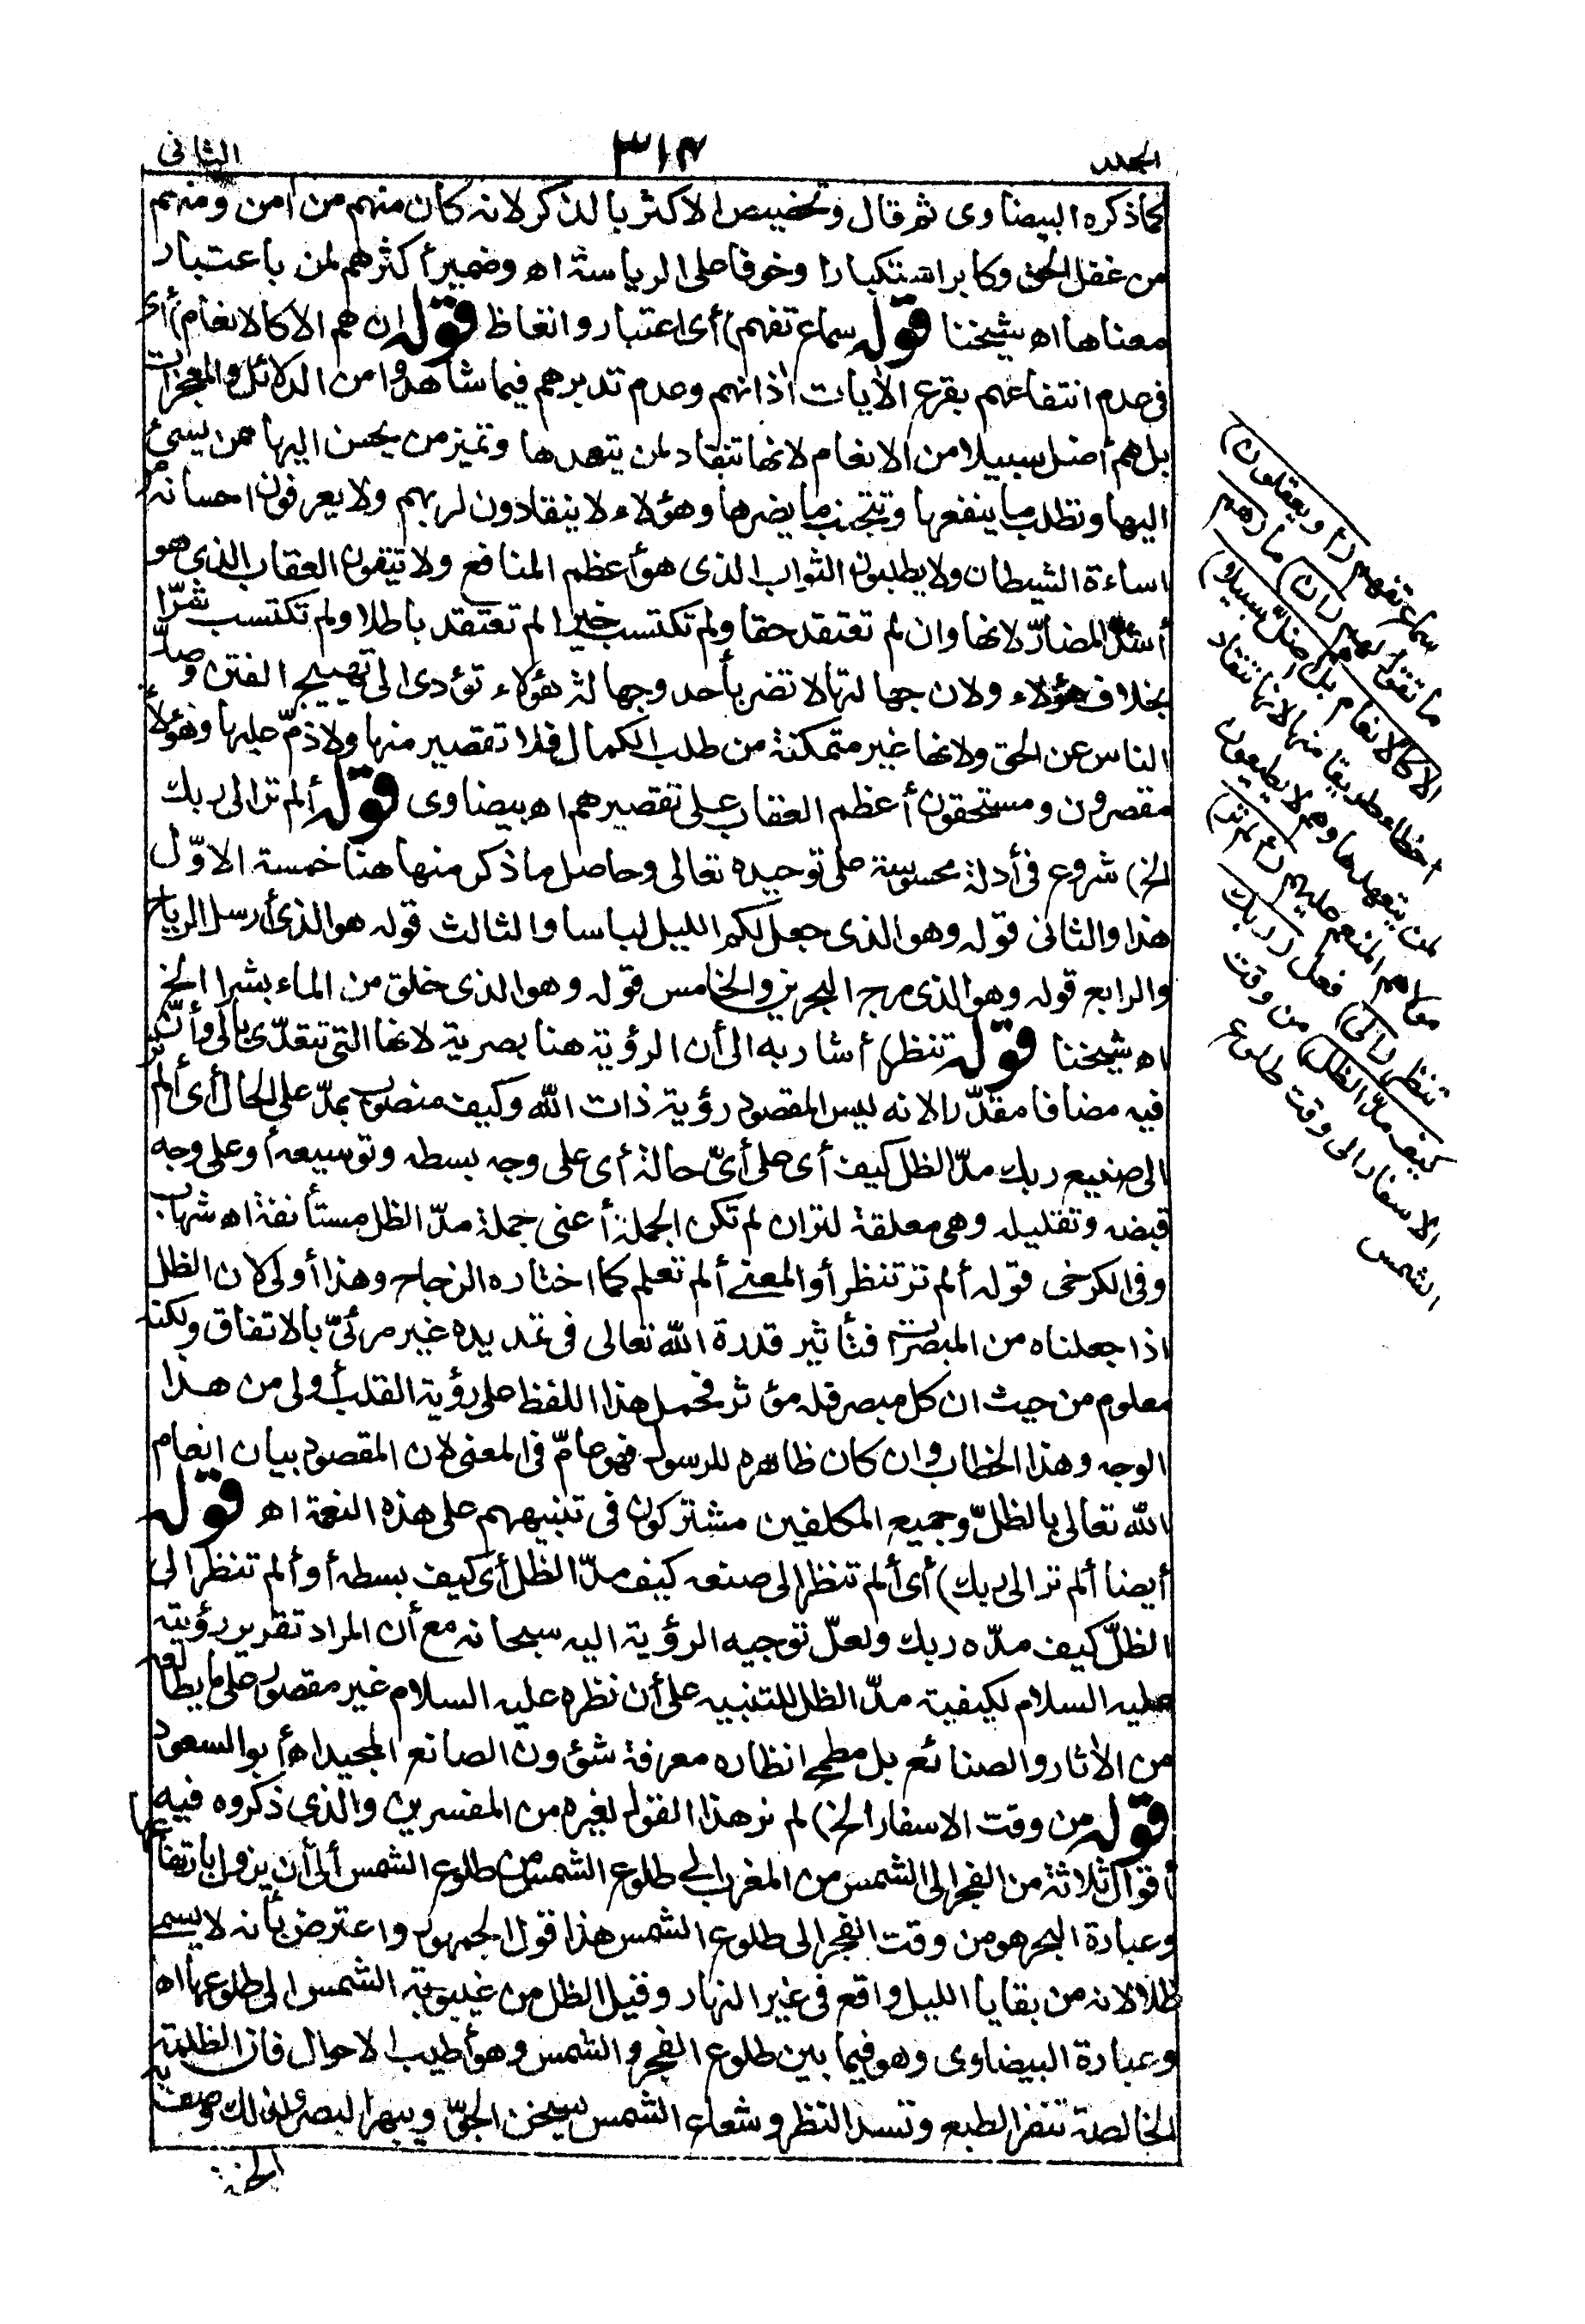 المجلد ٣١٤ الثانى
كما ذكره البيضاوى ثم قال وتخصيص الاكثر بالذكر لانه كان منهم من آمن ومنهم
من غفل الحق وكابر استكبارا وخوفا على الرياسة اه وضمير أكثرهم لمن باعتبار
معناها اه شيخنا قوله سماع تفهم) أى اعتبار واتعاظ قوله ان هم الا كالانعام) أى
فى عدم انتفاعهم بقرع الآيات آذانهم وعدم تدبرهم فيما شاهدوا من الدلائل والمعجزات
بل هم أضل سبيلا من الانعام لانها تنقاد لمن يتعهدها وتميز من يحسن اليها ممن يسىء
اليها وتطلب ما ينفعها وتتجنب ما يضرها وهؤلاء لا ينقادون لربهم ولا يعرفون احسانه من
اساءة الشيطان ولا يطلبون الثواب الذى هو أعظم المنافع ولا يتقون العقاب الذى هو
أشد المضارّ لانها وان لم تعتقد حقا ولم تكتسب خيرا لم تعتقد باطلا ولم تكتسب شرّا
بخلاف هؤلاء ولان جهالتها لا تضر بأحد وجهالة هؤلاء تؤدى الى تهييج الفتن وصدّ
الناس عن الحق ولانها غير متمكنة من طلب الكمال فلا تقصير منها ولا ذمّ عليها وهؤلاء
مقصرون ومستحقون أعظم العقاب على تقصيرهم اه بيضاوى قوله ألم تر الى ربك
الخ) شروع فى أدلة محسوسة على توحيده تعالى وحاصل ما ذكر منها هنا خمسة الاوّل
هذا والثانى قوله وهو الذى جعل لكم الليل لباسا والثالث قوله هو الذى أرسل الرياح
والرابع قوله وهو الذى مرج البحرين والخامس قوله وهو الذى خلق من الماء بشرا الخ
اه شيخنا قوله تنظر) أشار به الى أن الرؤية هنا بصرية لانها التى تتعدّى بالى وأنّ
فيه مضافا مقدّرا لانه ليس المقصود رؤية ذات الله وكيف منصوب بمدّ على الحال أى ألم تر
الى صنيع ربك مدّ الظل كيف أى على أىّ حالة أى على وجه بسطه وتوسيعه أو على وجه
قبضه وتقليله وهى معلقة لتر ان لم تكن الجملة أعنى جملة مدّ الظل مستأنفة اه شهاب
وفى الكرخى قوله ألم تر تنظر أو المعنى ألم تعلم كما اختاره الزجاج وهذا أولى لان الظل
اذا جعلناه من المبصرات فتأثير قدرة الله تعالى فى تمديده غير مرئىّ بالاتفاق ولكنه
معلوم من حيث ان كل مبصر فله مؤثر فحمل هذا اللفظ على رؤية القلب أولى من هذا
الوجه وهذا الخطاب وان كان ظاهره للرسول فهو عامّ فى المعنى لان المقصود بيان انعام
الله تعالى بالظلّ وجميع المكلفين مشتركون فى تنبيههم على هذه النعمة اه قوله
أيضا ألم تر الى ربك) أى ألم تنظر الى صنعه كيف مدّ الظل أى كيف بسطه أو ألم تنظر الى
الظلّ كيف مدّه ربك ولعلّ توجيه الرؤية اليه سبحانه مع أن المراد تقرير رؤيته
عليه السلام لكيفية مدّ الظل للتنبيه على أن نظره عليه السلام غير مقصور على ما يطالعه
من الآثار والصنائع بل مطمح انظاره معرفة شؤون الصانع المجيد اه أبو السعود
قوله من وقت الاسفار الخ) لم نر هذا القول لغيره من المفسرين والذى ذكروه فيه
أقوال ثلاثة من الفجر الى الشمس من المغرب الى طلوع الشمس من طلوع الشمس الى أن يزول بارتفاعها
وعبارة البحر هو من وقت الفجر الى طلوع الشمس هذا قول الجمهور واعترض بأنه لا يسمى
ظلا لانه من بقايا الليل واقع فى غير النهار وقيل الظل من غيبوبة الشمس الى طلوعها اه
وعبارة البيضاوى وهو فيما بين طلوع الفجر والشمس وهو أطيب الاحوال فان الظلمة
الخالصة تنفر الطبع وتسد النظر وشعاع الشمس يسخن الجوّ ويبهر البصر ولذلك وصف به
الجنة
سماع تفهم (أو يعقلون)
ما تقول لهم (ان) ما (هم
الا كالانعام بل هم أضلّ سبيلا)
أخطأ طريقا منها لانها تنقاد
لمن يتعهدها وهم لا يطيعون
مولاهم المنعم عليهم (ألم تر)
تنظر (الى) فعل (ربك
كيف مدّ الظل) من وقت
الاسفار الى وقت طلوع
الشمس